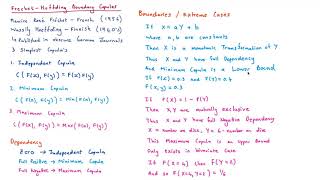 Frechet-Hoffding Boundary Copulas
Maurice Rene Frechet - French (1956)
Wassily Hoeffding - Finnish (1940's)
↳ Published in obscure German Journals
3 Simplest Copula's
1. Independent Copula
C(F(x), F(y)) = F(x)F(y)
2. Minimum Copula
C(F(x), F(y)) = Min(F(x), F(y))
3. Maximum Copula
C(F(x), F(y)) = Max(F(x), F(y))
Dependency
Zero → Independent Copula
Full Positive → Minimum Copula
Full Negative → Maximum Copula
Boundaries / Extreme Cases
If x = a y + b
where a, b are constants
Then X is a monotonic Transformation of Y
Thus X and Y have full Dependency
And Minimum Copula is a Lower Bound
If F(x) = 0.3 and F(y) = 0.4
F(x,y) = 0.3
If F(x) = 1 - F(y)
Then X and Y are mutually exclusive
Thus X and Y have full Negative Dependency
X = number on dice, Y = 6 - number on die
This Maximum Copula is an upper Bound
Only Exists in Bivariate Case
If F(x=4) then F(Y=2)
And so F(x=4, Y=2) = 1/6